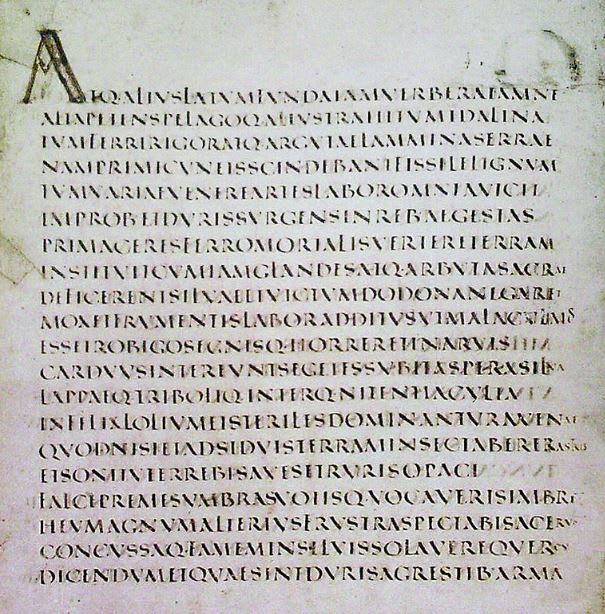 ATQ·ALIUSLATUMFUNDAIAMVERBERATAMNE
ALTAPETENSPELAGOQ·ALIUSTRAHITUMIDALINA
TUMFERRIRIGORATQ·ARGUTAELAMMINASERRAE
NAMPRIMICUNEISSCINDEBANTFISSILELIGNUM
TUMVARIAEVENEREARTESLABOROMNIAVICIT
IMPROBETDURISSURGENSINREBAEGESTAS
PRIMACERESFERROMORTALISVERTERETERRAM
INSTITUITCUMIAMGLANDESATQ·ARBUTASACRAE
DEFICERENTSILVAEETVICTUMDODONANEGARET
MOXETFRUMENTISLABORADDITUSUTMALACULMOS
ESSETROBIGOSEGNISQ·HORRERETINARVIS
CARDUUSINTEREUNTSEGETESSUBITASPERASILVA
LAPPAEQ·TRIBOLIQ·INTERQ·NITENTIACULTA
INFELIXLOLIUMETSTERILESDOMINANTURAVENAE
QUODNISIETADSIDUISTERRAMINSECTABERERASTRIS
ETSONITUTERREBISAVESETRURISOPACI
FALCEPREMESUMBRASVOTISQ·VOCAVERISIMBRE
HEUMAGNUMALTERIUSFRUSTRASPECTABISACERVUM
CONCUSSAQ·FAMEMINSILVISSOLAVEREQUERCU
DICENDUMETQUAESINTDURISAGRESTIB·ARMA